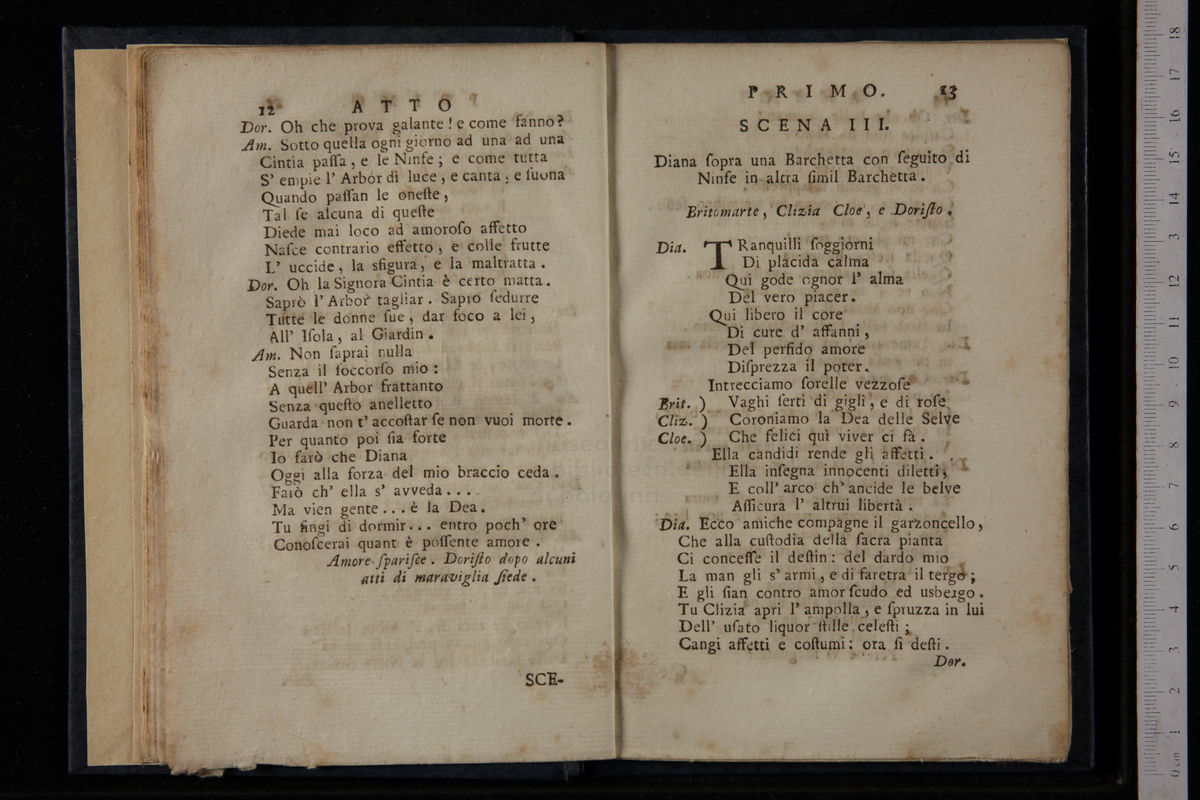 12 ATTO
Dor. Oh che prova galante! e come fanno?
Am. Sotto quella ogni giorno ad una ad una
Cintia paſſa, e le Ninfe; e come tutta
S' empie l' Arbor di luce, e canta, e ſuona
Quando paſſan le oneſte,
Tal ſe alcuna di queſte
Diede mai loco ad amoroſo affetto
Naſce contrario effetto, e colle frutte
L' uccide, la sfigura, e la maltratta.
Dor. Oh la Signora Cintia è certo matta.
Saprò l' Arbor tagliar. Sapro ſedurre
Tutte le donne ſue, dar foco a lei,
All' Iſola, al Giardin.
Am. Non ſaprai nulla
Senza il ſoccorſo mio:
A quell' Arbor frattanto
Senza queſto anelletto
Guarda non t' accoſtar ſe non vuoi morte.
Per quanto poi ſia forte
Io farò che Diana
Oggi alla forza del mio braccio ceda.
Farò ch' ella s' avveda....
Ma vien gente... è la Dea.
Tu fingi di dormir... entro poch' ore
Conoſcerai quant' è poſſente amore.
Amore ſpariſce. Doriſto dopo alcuni
atti di maraviglia ſiede.
SCE-
PRIMO. 13
SCENA III.
Diana ſopra una Barchetta con ſeguito di
Ninfe in altra ſimil Barchetta.
Britomarte, Clizia Cloe, e Doriſto.
Dia. TRanquilli ſoggiorni
Di placida calma
Qui gode ognor l' alma
Del vero piacer.
Qui libero il core
Di cure d' affanni,
Del perfido amore
Diſprezza il poter.
Intrecciamo ſorelle vezzoſe
Brit. ) Vaghi ſerti di gigli, e di roſe
Cliz. ) Coroniamo la Dea delle Selve
Cloe. ) Che felici quì viver ci fà.
Ella candidi rende gli affetti.
Ella inſegna innocenti diletti,
E coll' arco ch' ancide le belve
Aſſicura l' altrui libertà.
Dia. Ecco amiche compagne il garzoncello,
Che alla cuſtodia della ſacra pianta
Ci conceſſe il deſtin: del dardo mio
La man gli s' armi, e di faretra il tergo;
E gli ſian contro amor ſcudo ed usbergo.
Tu Clizia apri l' ampolla, e ſpruzza in lui
Dell' uſato liquor ſtille celeſti;
Cangi affetti e coſtumi: ora ſi deſti.
Dor.
0 cm 1 2 3 4 5 6 7 8 9 10 11 12 13 14 15 16 17 18